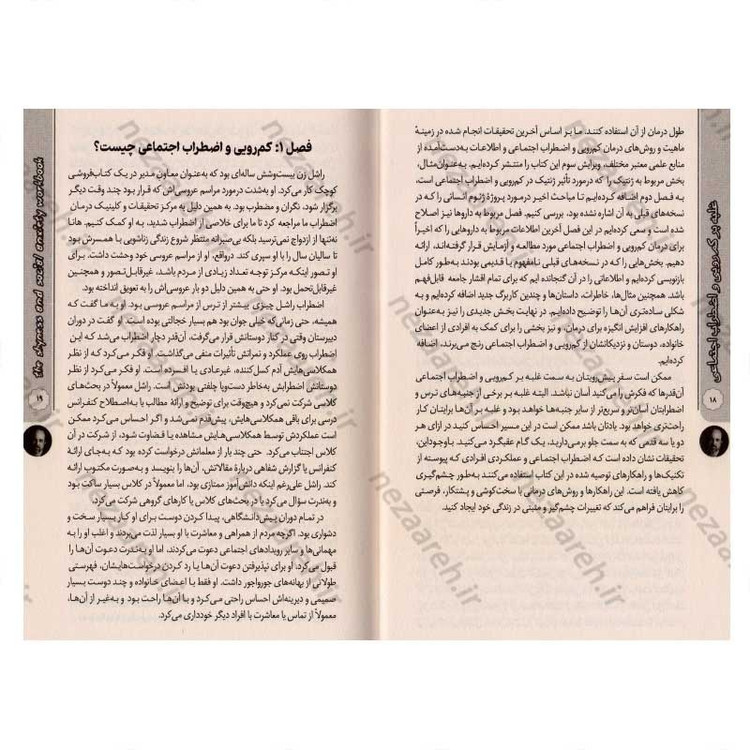 طول درمان از آن استفاده کنند. ما بر اساس آخرین تحقیقات انجام شده در زمینهٔ
ماهیت و روش‌های درمان کم‌رویی و اضطراب اجتماعی و اطلاعات به‌دست‌آمده از
منابع علمی معتبر مختلف، ویرایش سوم این کتاب را منتشر کرده‌ایم. به‌عنوان‌مثال،
بخش مربوط به ژنتیک را که درمورد تأثیر ژنتیک در کم‌رویی و اضطراب اجتماعی است،
به فصل دوم اضافه کرده‌ایم تا مباحث اخیر درمورد پروژهٔ ژنوم انسانی را که در
نسخه‌های قبلی به آن اشاره نشده بود، بررسی کنیم. فصل مربوط به داروها نیز اصلاح
شده است و سعی کرده‌ایم در این فصل آخرین اطلاعات مربوط به داروهایی را که اخیراً
برای درمان کم‌رویی و اضطراب اجتماعی مورد مطالعه و آزمایش قرار گرفته‌اند، ارائه
دهیم. بخش‌هایی را که در نسخه‌های قبلی نامفهوم یا قدیمی بودند به‌طور کامل
بازنویسی کرده‌ایم و اطلاعاتی را در آن گنجانده ایم که برای تمام اقشار جامعه قابل‌فهم
باشد. همچنین مثال‌ها، خاطرات، داستان‌ها و چندین کاربرگ جدید اضافه کرده‌ایم و به
شکلی ساده‌تری آن‌ها را توضیح داده‌ایم. در نهایت بخش جدیدی را نیز به‌عنوان
راهکارهای افزایش انگیزه برای درمان و نیز بخشی را برای کمک به افرادی از اعضای
خانواده، دوستان و نزدیکانشان از کم‌رویی و اضطراب اجتماعی رنج می‌برند، اضافه
کرده‌ایم.
ممکن است سفر پیش‌رویتان به سمت غلبه بر کم‌رویی و اضطراب اجتماعی
آن‌قدرها که فکرش را می‌کنید آسان نباشد. البته غلبه بر برخی از جنبه‌های ترس و
اضطرابتان آسان‌تر و سریع‌تر از سایر جنبه‌ها خواهد بود و غلبه بر آن‌ها برایتان کار
راحت‌تری خواهد بود. یادتان باشد ممکن است در این مسیر احساس کنید در ازای هر
دو یا سه قدمی که به سمت جلو برمی‌دارید، یک گام عقبگرد می‌کنید. باوجوداین،
تحقیقات نشان داده است که اضطراب اجتماعی و عملکردی افرادی که پیوسته از
تکنیک‌ها و راهکارهای توصیه شده در این کتاب استفاده می‌کنند به‌طور چشم‌گیری
کاهش یافته است. این راهکارها و روش‌های درمانی با سخت‌کوشی و پشتکار، فرصتی
را برایتان فراهم می‌کند که تغییرات چشم‌گیر و مثبتی در زندگی خود ایجاد کنید.
غلبه بر کم‌رویی و اضطراب اجتماعی
۱۸
فصل ۱: کم‌رویی و اضطراب اجتماعی چیست؟
راشل زن بیست‌وشش ساله‌ای بود که به‌عنوان معاون مدیر در یک کتاب‌فروشی
کوچک کار می‌کرد. او به‌شدت درمورد مراسم عروسی‌اش که قرار بود چند وقت دیگر
برگزار شود، نگران و مضطرب بود. به همین دلیل به مرکز تحقیقات و کلینیک درمان
اضطراب ما مراجعه کرد تا ما برای خلاصی از اضطراب شدید، به او کمک کنیم. هانا
نه‌تنها از ازدواج نمی‌ترسید بلکه بی‌صبرانه منتظر شروع زندگی زناشویی با همسرش بود
تا سالیان سال را با او سپری کند. درواقع، او از مراسم عروسی خود وحشت داشت. برای
او تصور اینکه مرکز توجه تعداد زیادی از مردم باشد، غیرقابل‌تصور و همچنین
غیرقابل‌تحمل بود. او حتی به همین دلیل دو بار عروسی‌اش را به تعویق انداخته بود.
اضطراب راشل چیزی بیشتر از ترس از مراسم عروسی بود. او به ما گفت که
همیشه، حتی زمانی‌که خیلی جوان بود هم بسیار خجالتی بوده است. او گفت در دوران
دبیرستان وقتی در کنار دوستانش قرار می‌گرفت، آن‌قدر دچار اضطراب می‌شد که این
اضطراب روی عملکرد و نمراتش تأثیرات منفی می‌گذاشت. او فکر می‌کرد که از نظر
همکلاسی‌هایش آدم کسل‌کننده، غیرعادی یا افسرده است. او فکر می‌کرد از نظر
دوستانش اضطرابش به‌خاطر دست‌وپا چلفتی بودنش است. راشل معمولاً در بحث‌های
کلاسی شرکت نمی‌کرد و هیچ‌وقت برای توضیح و ارائهٔ مطالب یا به‌اصطلاح کنفرانس
درسی برای باقی همکلاسی‌هایش، پیش‌قدم نمی‌شد و اگر احساس می‌کرد ممکن
است عملکردش توسط همکلاسی‌هایش مشاهده یا قضاوت شود، از شرکت در آن
کلاس اجتناب می‌کرد. حتی چند بار از معلمانش درخواست کرده بود که به‌جای ارائهٔ
کنفرانس یا گزارش شفاهی دربارهٔ مقالاتش، آن‌ها را بنویسد و به‌صورت مکتوب ارائه
کند. راشل علی‌رغم اینکه دانش‌آموز ممتازی بود، اما معمولاً در کلاس بسیار ساکت بود
و به‌ندرت سؤال می‌کرد یا در بحث‌های کلاس یا کارهای گروهی شرکت می‌کرد.
در تمام دوران پیش‌دانشگاهی، پیدا کردن دوست برای او کار بسیار سخت و
دشواری بود. اگرچه مردم از همراهی و معاشرت با او لذت می‌بردند و اغلب او را به
مهمانی‌ها و سایر رویدادهای اجتماعی دعوت می‌کردند، اما او به‌ندرت دعوت آن‌ها را
قبول می‌کرد. او برای نپذیرفتن دعوت آن‌ها یا رد کردن درخواست‌هایشان، فهرستی
طولانی از بهانه‌های جورواجور داشت. او فقط با اعضای خانواده و چند دوست بسیار
صمیمی و دیرینه‌اش احساس راحتی می‌کرد و با آن‌ها راحت بود و به‌غیر از آن‌ها،
معمولاً از تماس یا معاشرت با افراد دیگر خودداری می‌کرد.
the shyness and social anxiety workbook
۱۹
nezaareh.ir